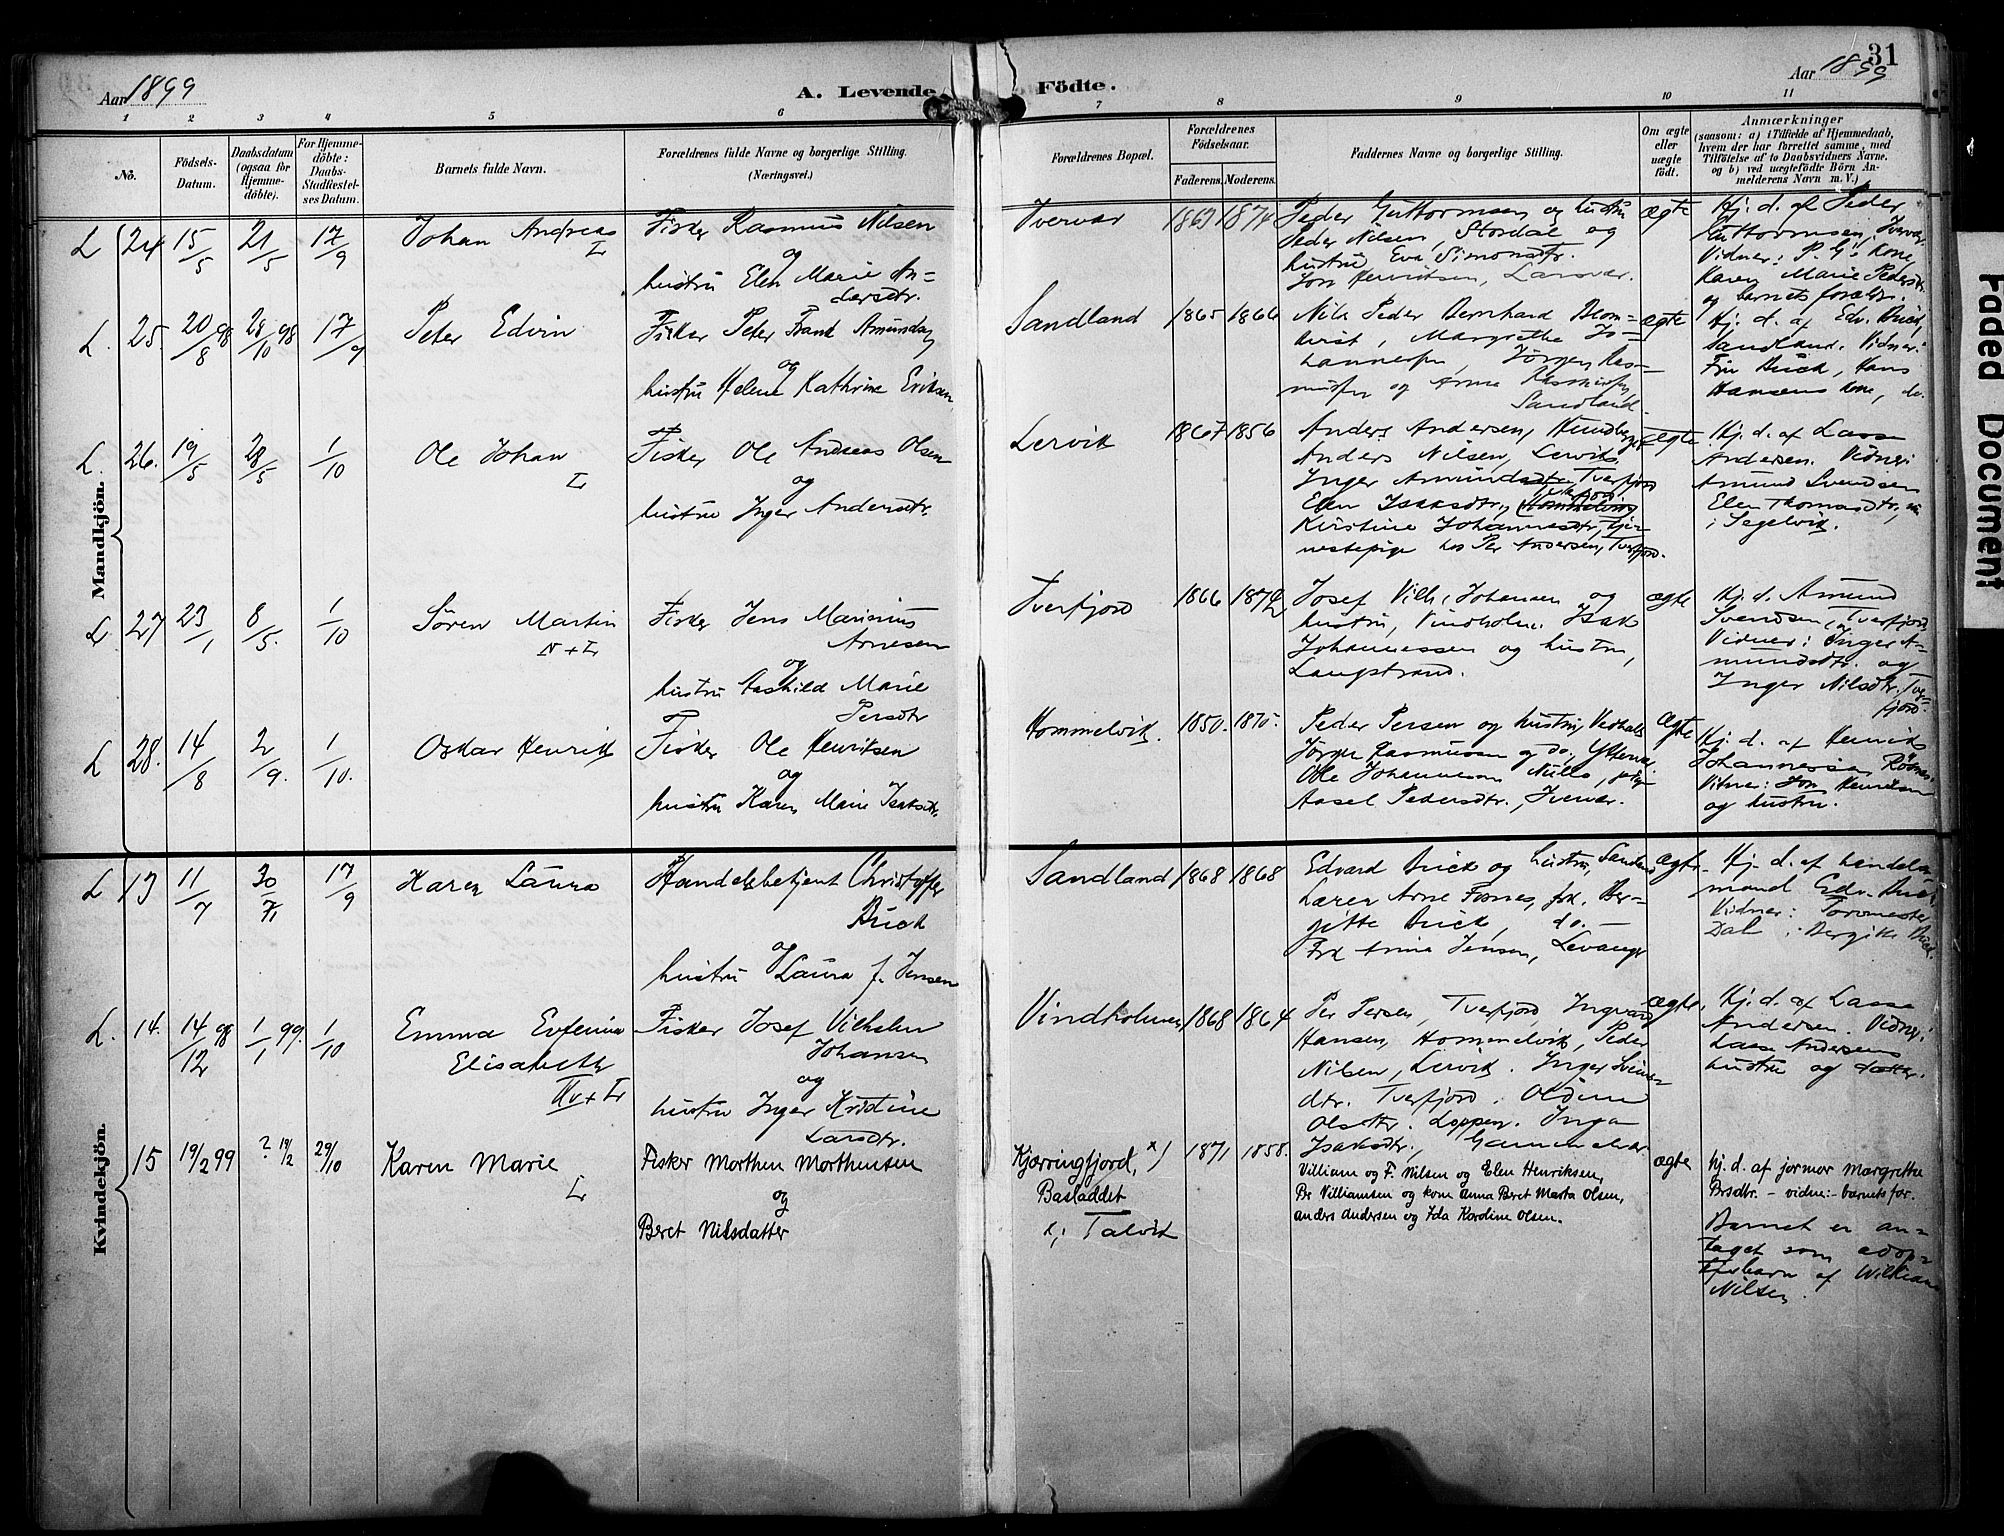 31
Aar 1899
A. Levende Födte.
Aar 1899
1 2 3 4 5 6 7 8 9 10 11
No.
Födsels-
Datum.
Daabsdatum
(ogsaa for
Hjemme-
döbte).
For Hjemme-
döbte:
Daabs-
Stadfæstel-
ses Datum.
Barnets fulde Navn.
Forældrenes fulde Navne og borgerlige Stilling.
(Næringsvei.)
Forældrenes Bopæl.
Forældrenes
Födselsaar.
Faderens. Moderens.
Faddernes Navne og borgerlige Stilling.
Om ægte
eller
uægte
födt.
Anmærkninger
(saasom: a) i Tilfælde af Hjemmedaab,
hvem der har forrettet samme, med
Tilföielse af to Daabsvidners Navne.
og b) ved uægtefödte Börn An-
melderens Navn m. V.)
Mandkjön.
L 24 15/5 21/5 17/9
Johan Andreas
L
Fisker Rasmus Nilsen
og
hustru Elen Marie An-
dersdtr.
Iverver 1867 1874
Peder Guttormsen og hustru
Peder Nilsen, Stordal og
hustru Eva Simonsdtr.
Jon Henriksen, Larsvær.
ægte
Hj. d. af Peder
Guttormsen, Iverver
Vidner: P. G's kone
Karen Marie Pedersdtr
og barnets forældre.
L. 25. 20/8 98 28/10 98 17/9
Peter Edvin
Fisker Peter Frank Amundsen
og
hustru Helene Kathrine Eriksen
Sandland 1865 1866
Nils Peder Bernhard Blom-
kvist, Margrethe Jo-
hannesen, Jörgen Ras-
mussen og Anna Rasmussen
Sandland.
ægte
Hj. d. af Edv. Buck,
Sandland. Vidner:
Fru Buck, Hans
Hansens kone, do.
L. 26. 19/5 28/5 1/10
Ole Johan
L
Fisker Ole Andreas Olsen
og
hustru Inger Andersdtr
Lervik 1867 1856
Anders Andersen,
Anders Nilsen, Lervik.
Inger Amundsdtr Tverfjord
Elen Isaksdtr,
Kirstine Johannesdtr, tje-
nestepige hos Per Andersen, Tverfjord.
ægte
Hj. d. af Lasse
Andersen. Vidner:
Amund Svendsen
Elen Thomasdtr,
i Segelvik.
L 27 23/1 8/5. 1/10
Sören Martin
N + L
Fisker Jens Marinius
Arnesen
og
hustru Aashild Marie
Persdtr
Tverfjord 1866 1872
Josef Vilh. Johansen og
hustru, Vindholm. Isak
Johannessen og hustru,
Langstrand.
ægte
Hj. d. Amund
Svendsen, Tverfjord
Vidner: Inger A-
mundsdtr. og
Inger Nilsdtr. Tver-
fjord.
L 28. 14/8 2/9. 1/10.
Oskar Henrik
Fisker Ole Henriksen
og
hustru Karen Marie Isaksdtr.
Hommelvik. 1850. 1875.
Peder Persen og hustru,
Jörgen Rasmussen og do,
Ole Johannesen Nuvls,
Aasel Pedersdtr., Iverver.
Ægte
Hj. d. af Henrik
Johannesen
Vidner: Jon Henriksen
og hustru.
Kvindekjön.
L 13 11/7 30/7 17/9
Karen Laura
Handelsbetjent Christoffer
Buck
og
hustru Laura f. Jensen
Sandland 1868 1868
Edvard Buck og hustru, Sandland
Lærer Arne Fosnes, frk. Ber-
gitte Buck, do. —
Frk Anna Jensen, Levanger
ægte.
Hj. d. af handels
mand Edv. Buck
Vidner:
Dal Bergitte Buck.
L. 14. 14/12 98 1/1 99. 1/10
Emma Eufenia
Elisabeth
N + L
Fisker Josef Vilhelm
Johansen
og
hustru Inger Kristine
Larsdtr.
Vindholmen 1868 1864
Per Persen, Tverfjord, Ingvard
Hansen, Hommelvik, Peder
Nilsen, Lervik. Inger
dtr. Tverfjord.
Olsdtr. Loppen. Inga
Isaksdtr.,
ægte.
Hj. d. af Lasse
Andersen. Vidner:
Lasse Andersens
hustru og datter.
15 19/2 99 ? 19/2 29/10
Karen Marie
L
Fisker Morthen Morthensen
og
Beret Nilsdatter
Kjærringfjord, x)
Basladdet
x) Talvik
1871 1858.
Villiam og F. Nilsen og Elen Henriksen,
Pr Villiamsen og kone Anna Beret Marta Olsen,
Anders Andersen og Ida Kardine Olsen.
ægte
Hj. d. af jormor Margrethe
Prsdtr. – vidne:- barnets for.
Barnet er an-
taget som adop-
tivbarn af William
Nilsen.
Faded Document